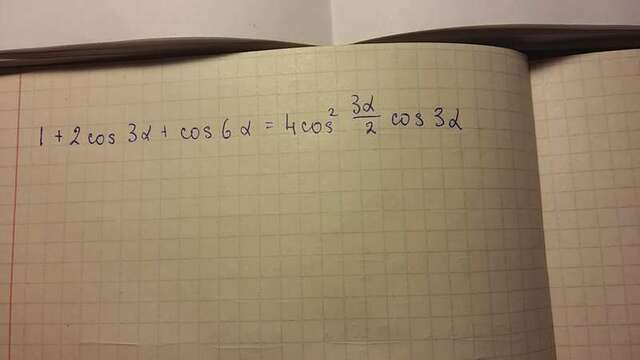 1 + 2 cos 3α + cos 6α = 4 cos² 3α/2 cos 3α